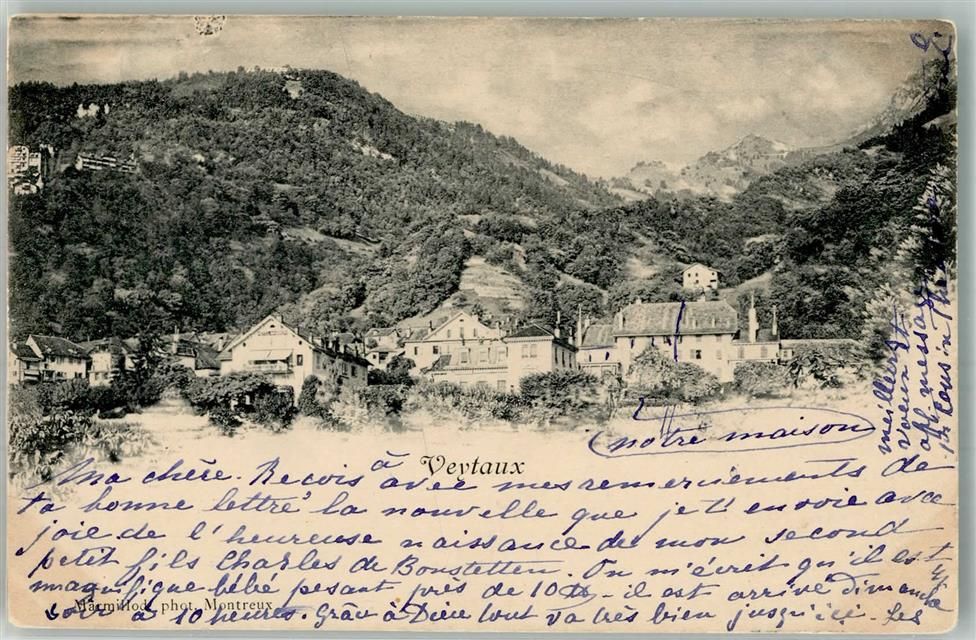 notre maison
Veytaux
Ma chère. Recois à avec mes remerciements de
ta bonne lettre la nouvelle que je t'envoie avec
joie de l'heureuse naissance de mon second
petit fils Charles de Bonstetten. On m'écrit qu'il est
magnifique bébé pesant près de 10 - il est arrivé dimanche
soir à 10 heures. Grâce à Dieu tout va très bien jusqu'ici. Les
Marmillod, phot. Montreux
meilleurs
voeux et
aff messages